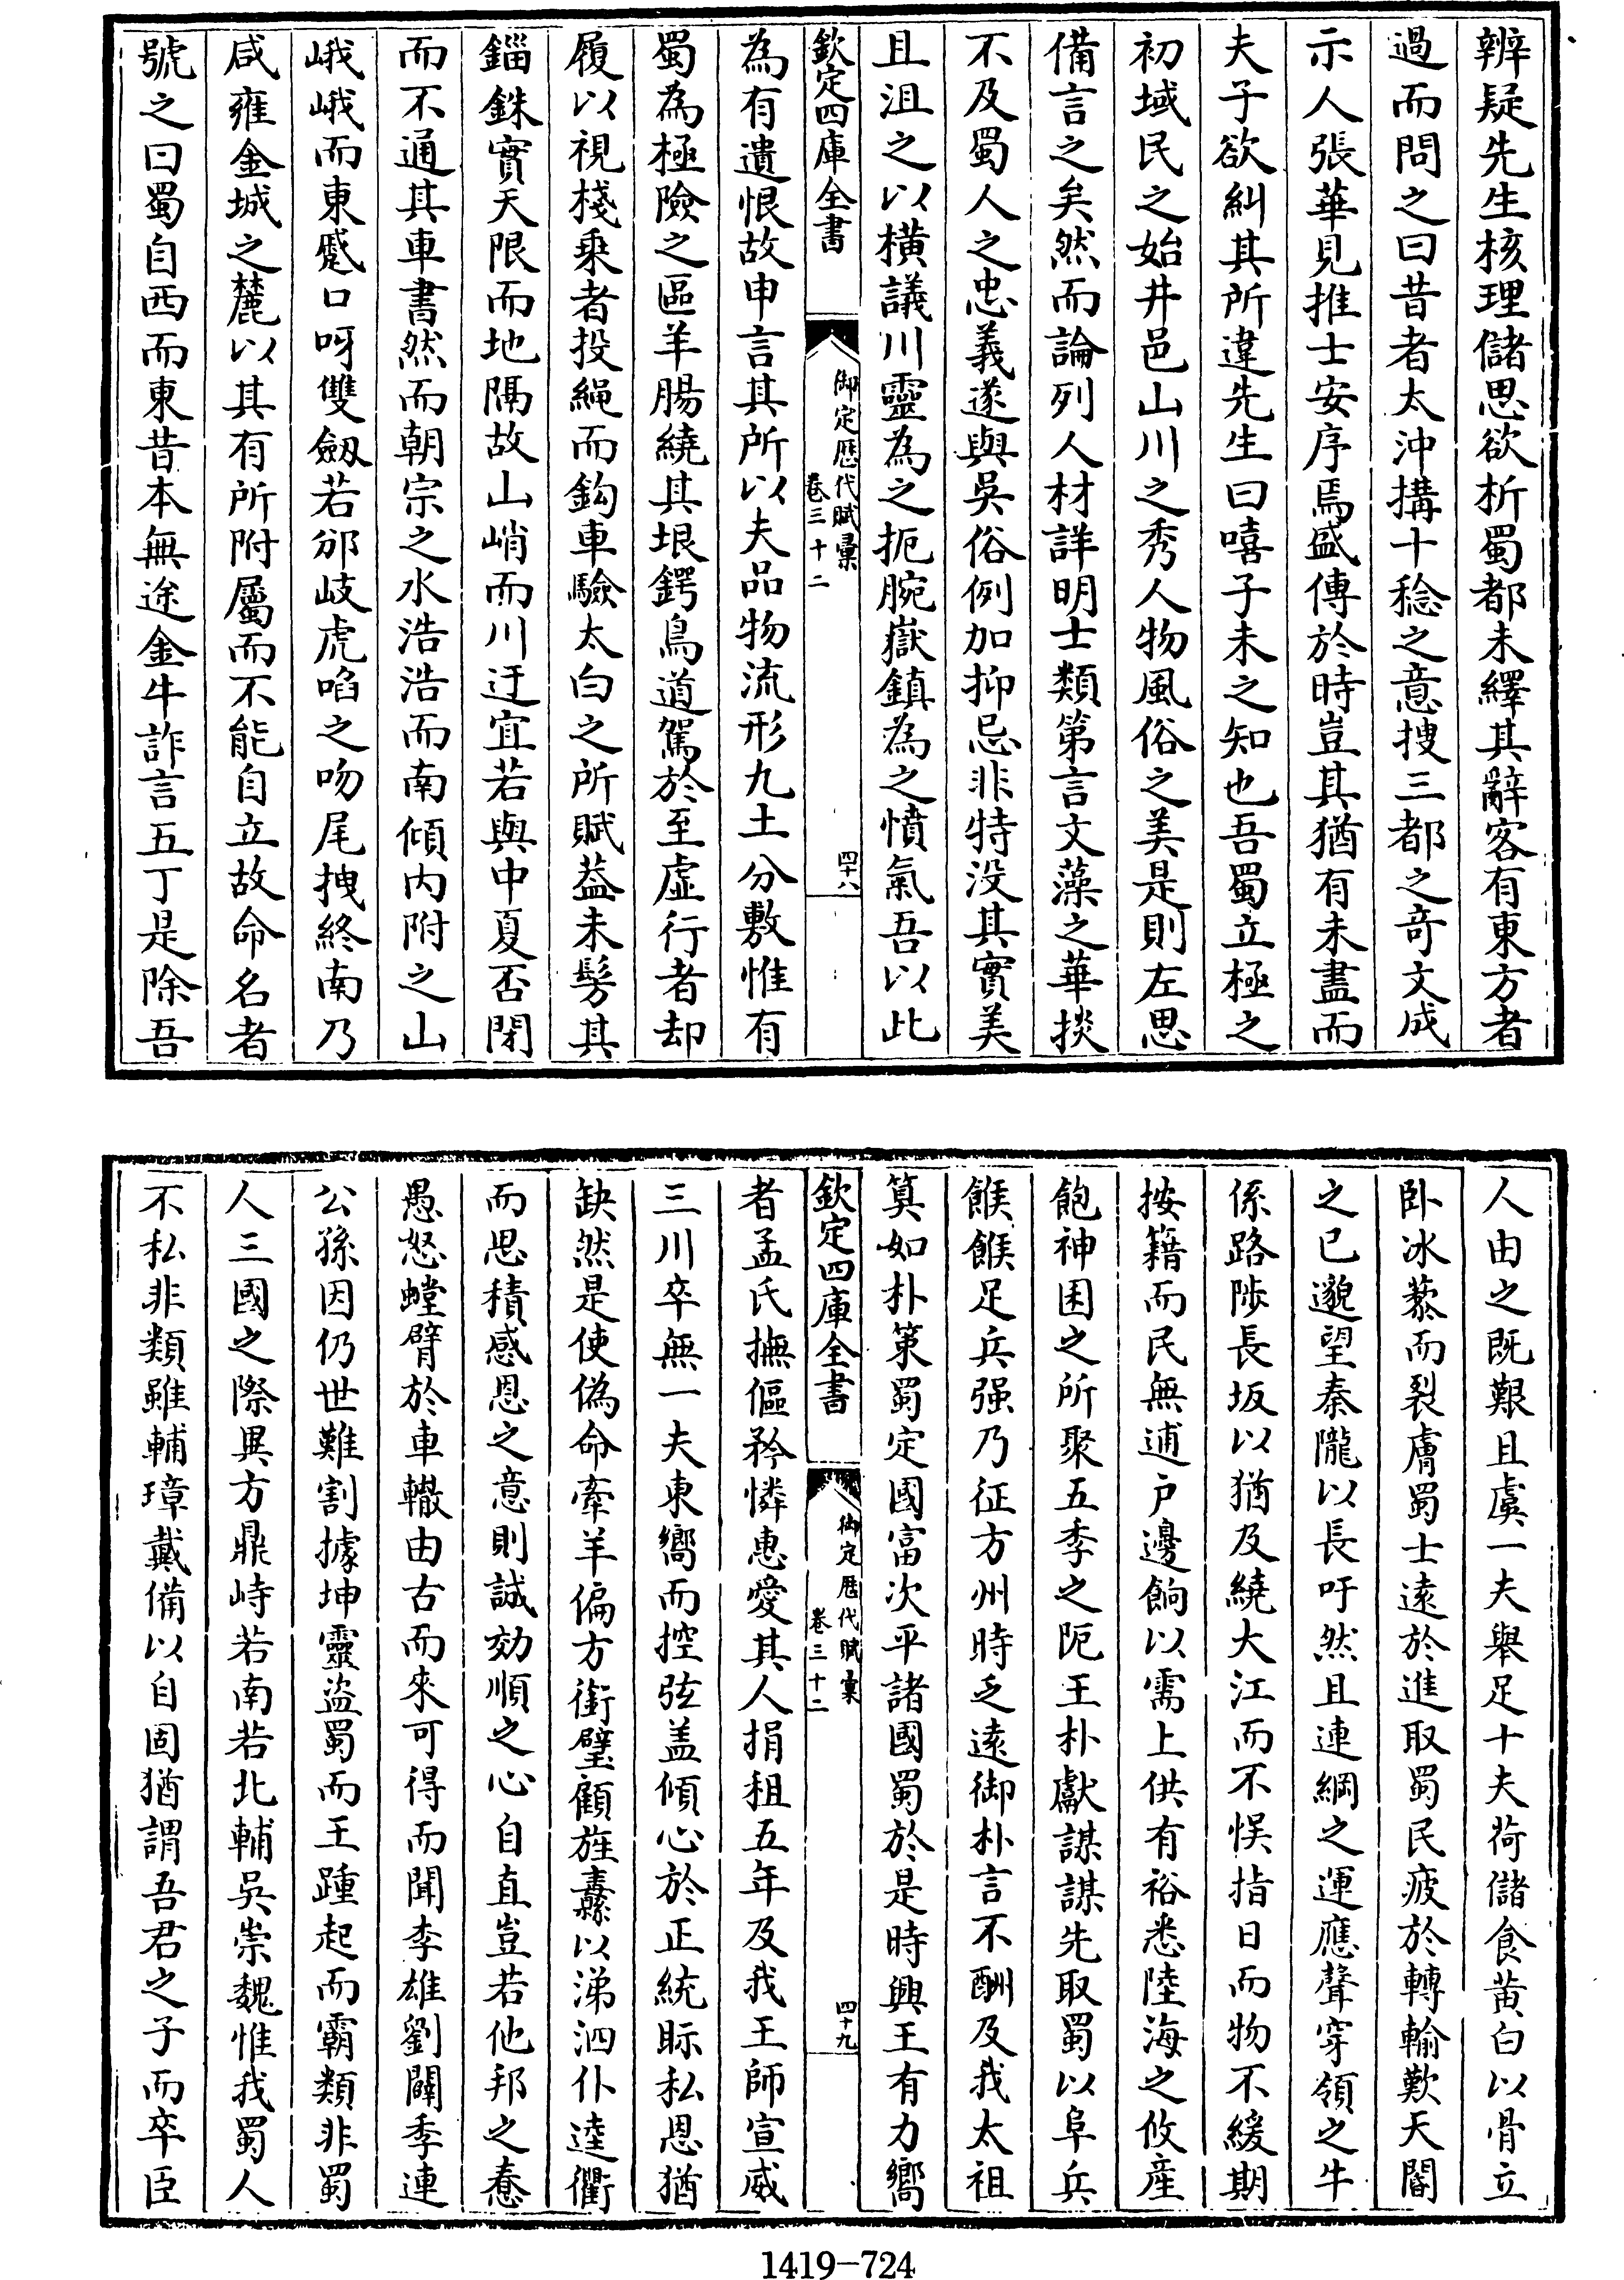 辨疑先生核理儲思欲析蜀都未繹其辭客有東方者
過而問之曰昔者太沖搆十稔之意捜三都之竒文成
示人張華見推士安序焉盛傳於時豈其猶有未盡而
夫子欲糾其所違先生曰嘻子未之知也吾蜀立極之
初域民之始井邑山川之秀人物風俗之美是則左思
備言之矣然而論列人材詳明士類第言文藻之華掞
不及蜀人之忠義遂與吳俗例加抑忌非特沒其實美
且沮之以橫議川靈為之扼腕嶽鎮為之憤氣吾以此
欽定四庫全書
御定歴代賦彚
卷三十二
四十八
為有遺恨故申言其所以夫品物流形九土分敷惟有
蜀為極險之區羊腸繞其垠鍔鳥道駕於至虛行者却
履以視棧乗者投繩而鈎車驗太白之所賦葢未髣其
錙銖實天限而地隔故山峭而川迂宜若與中夏否閉
而不通其車書然而朝宗之水浩浩而南傾内附之山
峨峨而東蹙口呀雙劔若邠岐虎啗之吻尾拽終南乃
咸雍金城之麓以其有所附屬而不能自立故命名者
號之曰蜀自西而東昔本無途金牛詐言五丁是除吾
人由之既艱且虞一夫舉足十夫荷儲食黄白以骨立
卧冰藜而裂膚蜀士遠於進取蜀民疲於轉輸歎天閽
之已邈望秦隴以長吁然且連綱之運應聲穿領之牛
係路陟長坂以猶及繞大江而不悞指日而物不緩期
按籍而民無逋户邊餉以需上供有裕悉陸海之攸産
飽神困之所聚五季之阨王朴獻謀謀先取蜀以阜兵
餱餱足兵强乃征方州時乏遠御朴言不酬及我太祖
算如朴策蜀定國富次平諸國蜀於是時興王有力嚮
欽定四庫全書
御定歴代賦彚
卷三十二
四十九
者孟氏撫傴矜憐惠愛其人捐租五年及我王師宣威
三川卒無一夫東嚮而控弦盖傾心於正統眎私恩猶
缺然是使偽命牽羊偏方銜璧顧旌纛以涕泗仆逵衢
而思積感恩之意則誠効順之心自直豈若他邦之惷
愚怒螳臂於車轍由古而來可得而聞李雄劉闢季連
公孫因仍世難割據坤靈盜蜀而王踵起而霸類非蜀
人三國之際異方鼎峙若南若北輔吳崇魏惟我蜀人
不私非類雖輔璋戴備以自固猶謂吾君之子而卒臣
1419-724